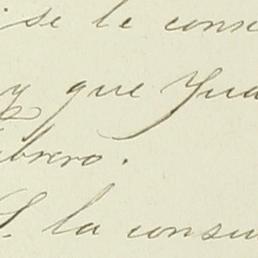 se le cons
y que Jua
ebrero.
S. la consu